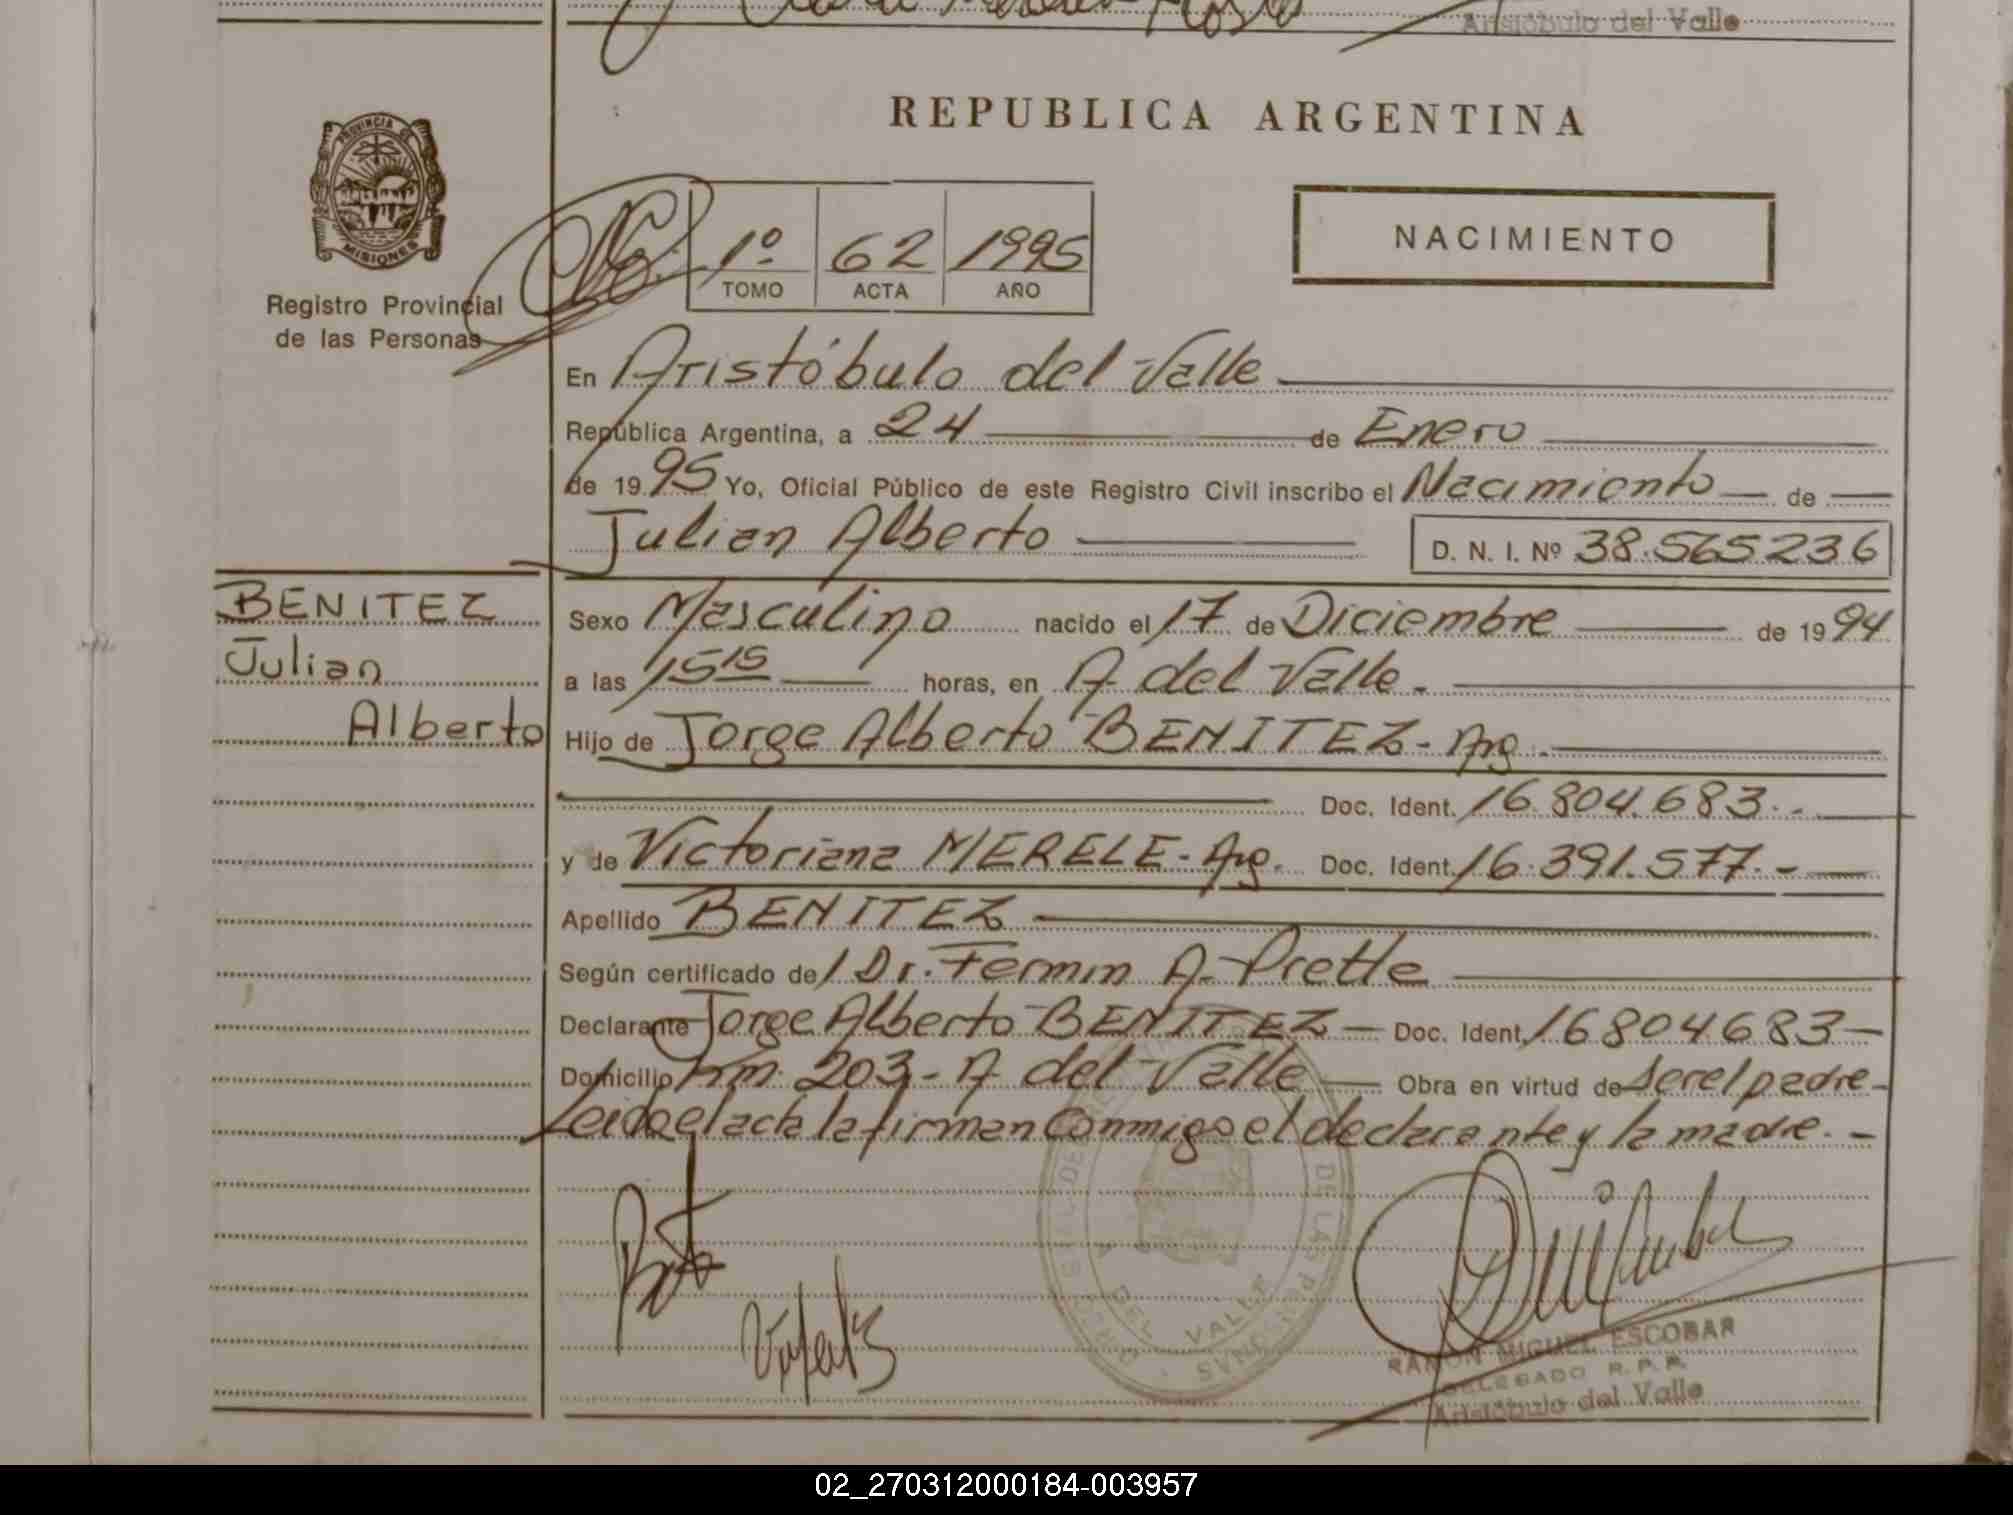 Aristóbulo del Valle
REPUBLICA ARGENTINA
PROVINCIA DE
MISIONES
Registro Provincial
de las Personas
1º 62 1995
TOMO ACTA AÑO
NACIMIENTO
En Aristóbulo del Valle
República Argentina, a 24 de Enero
de 1995 Yo, Oficial Público de este Registro Civil inscribo el Nacimiento de
Julian Alberto D. N. I. Nº 38.565236
BENITEZ
Julian
Alberto
Sexo Masculino nacido el 17 de Diciembre de 1994
a las 15 15 horas, en A del Valle.
Hijo de Jorge Alberto BENITEZ - Arg.
Doc. Ident. 16.804.683.-
y de Victoriana MERELE - Arg. Doc. Ident. 16.391.577.-
Apellido BENITEZ
Según certificado del Dr. Fermin A. Prette
Declarante Jorge Alberto BENITEZ - Doc. Ident. 16804683-
Domicilio Km. 203 - A del Valle Obra en virtud de ser el padre-
Leido el acta la firman conmigo el declarante y la madre.-
DE LAS PERSONAS
DEL VALLE
RAMON MIGUEL ESCOBAR
DELEGADO R. P. P.
Aristóbulo del Valle
02_270312000184-003957